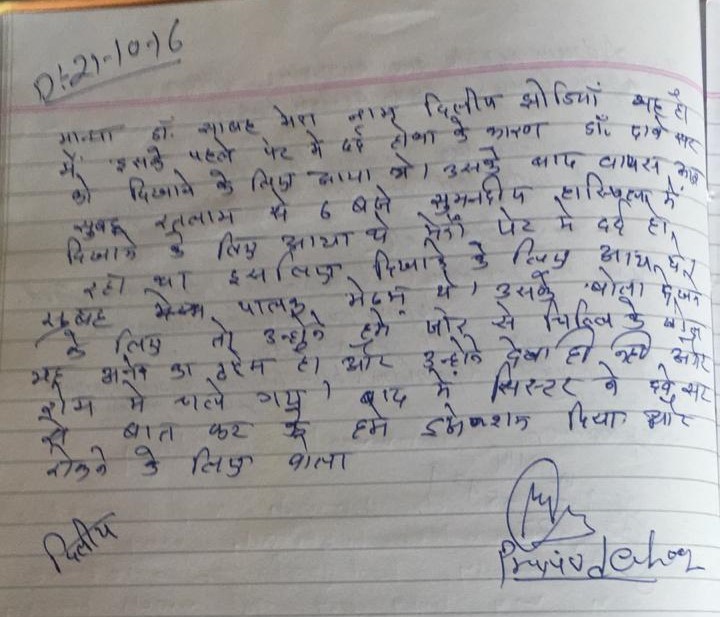 Dt:21-10-16
डॉ. साबह मेरा नाम दिलीप यह है
में इसके पहले पेट में दर्द होना के कारण डॉ. दवे सर
को दिखाने के लिए आया थे। उसके बाद वापस आज
सुबह रतलाम से 6 बजे सुमनदीप हास्पिटल में
दिखाने के लिए आया थे मेरे पेट में दर्द हो
रहा था इसलिए दिखाने के लिए आया
सुबह पालक मेडम थे। उसके बोला देखने
के लिए तो उन्होंने हमे जोर से के बोला
यह का टाइम हा और उन्होंने देखा ही नही और
रोम में चले गए। बाद में सिस्टर ने दवे सर
से बात कर के हमे इंजेक्शन दिया और
रोकने के लिए बोला
दिलीप